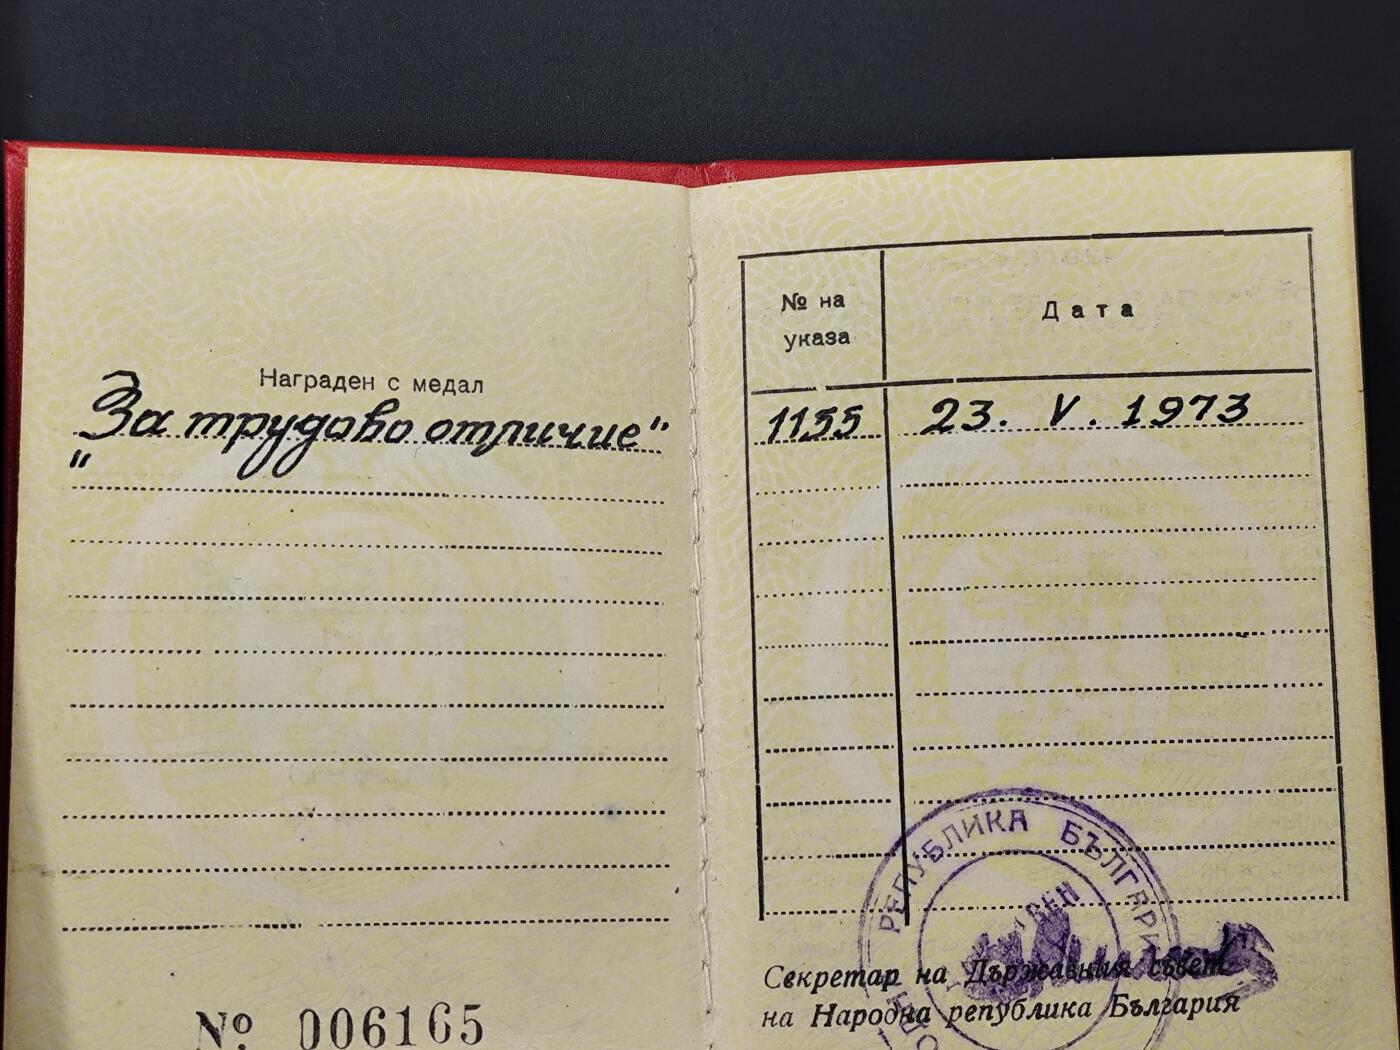 Награден с медал
„За трудово отличие“
№ 006165
№ на
указа
Дата
1155
23. V. 1973
РЕПУБЛИКА БЪЛГАРИ
Секретар на Държавния съвет
на Народна република България